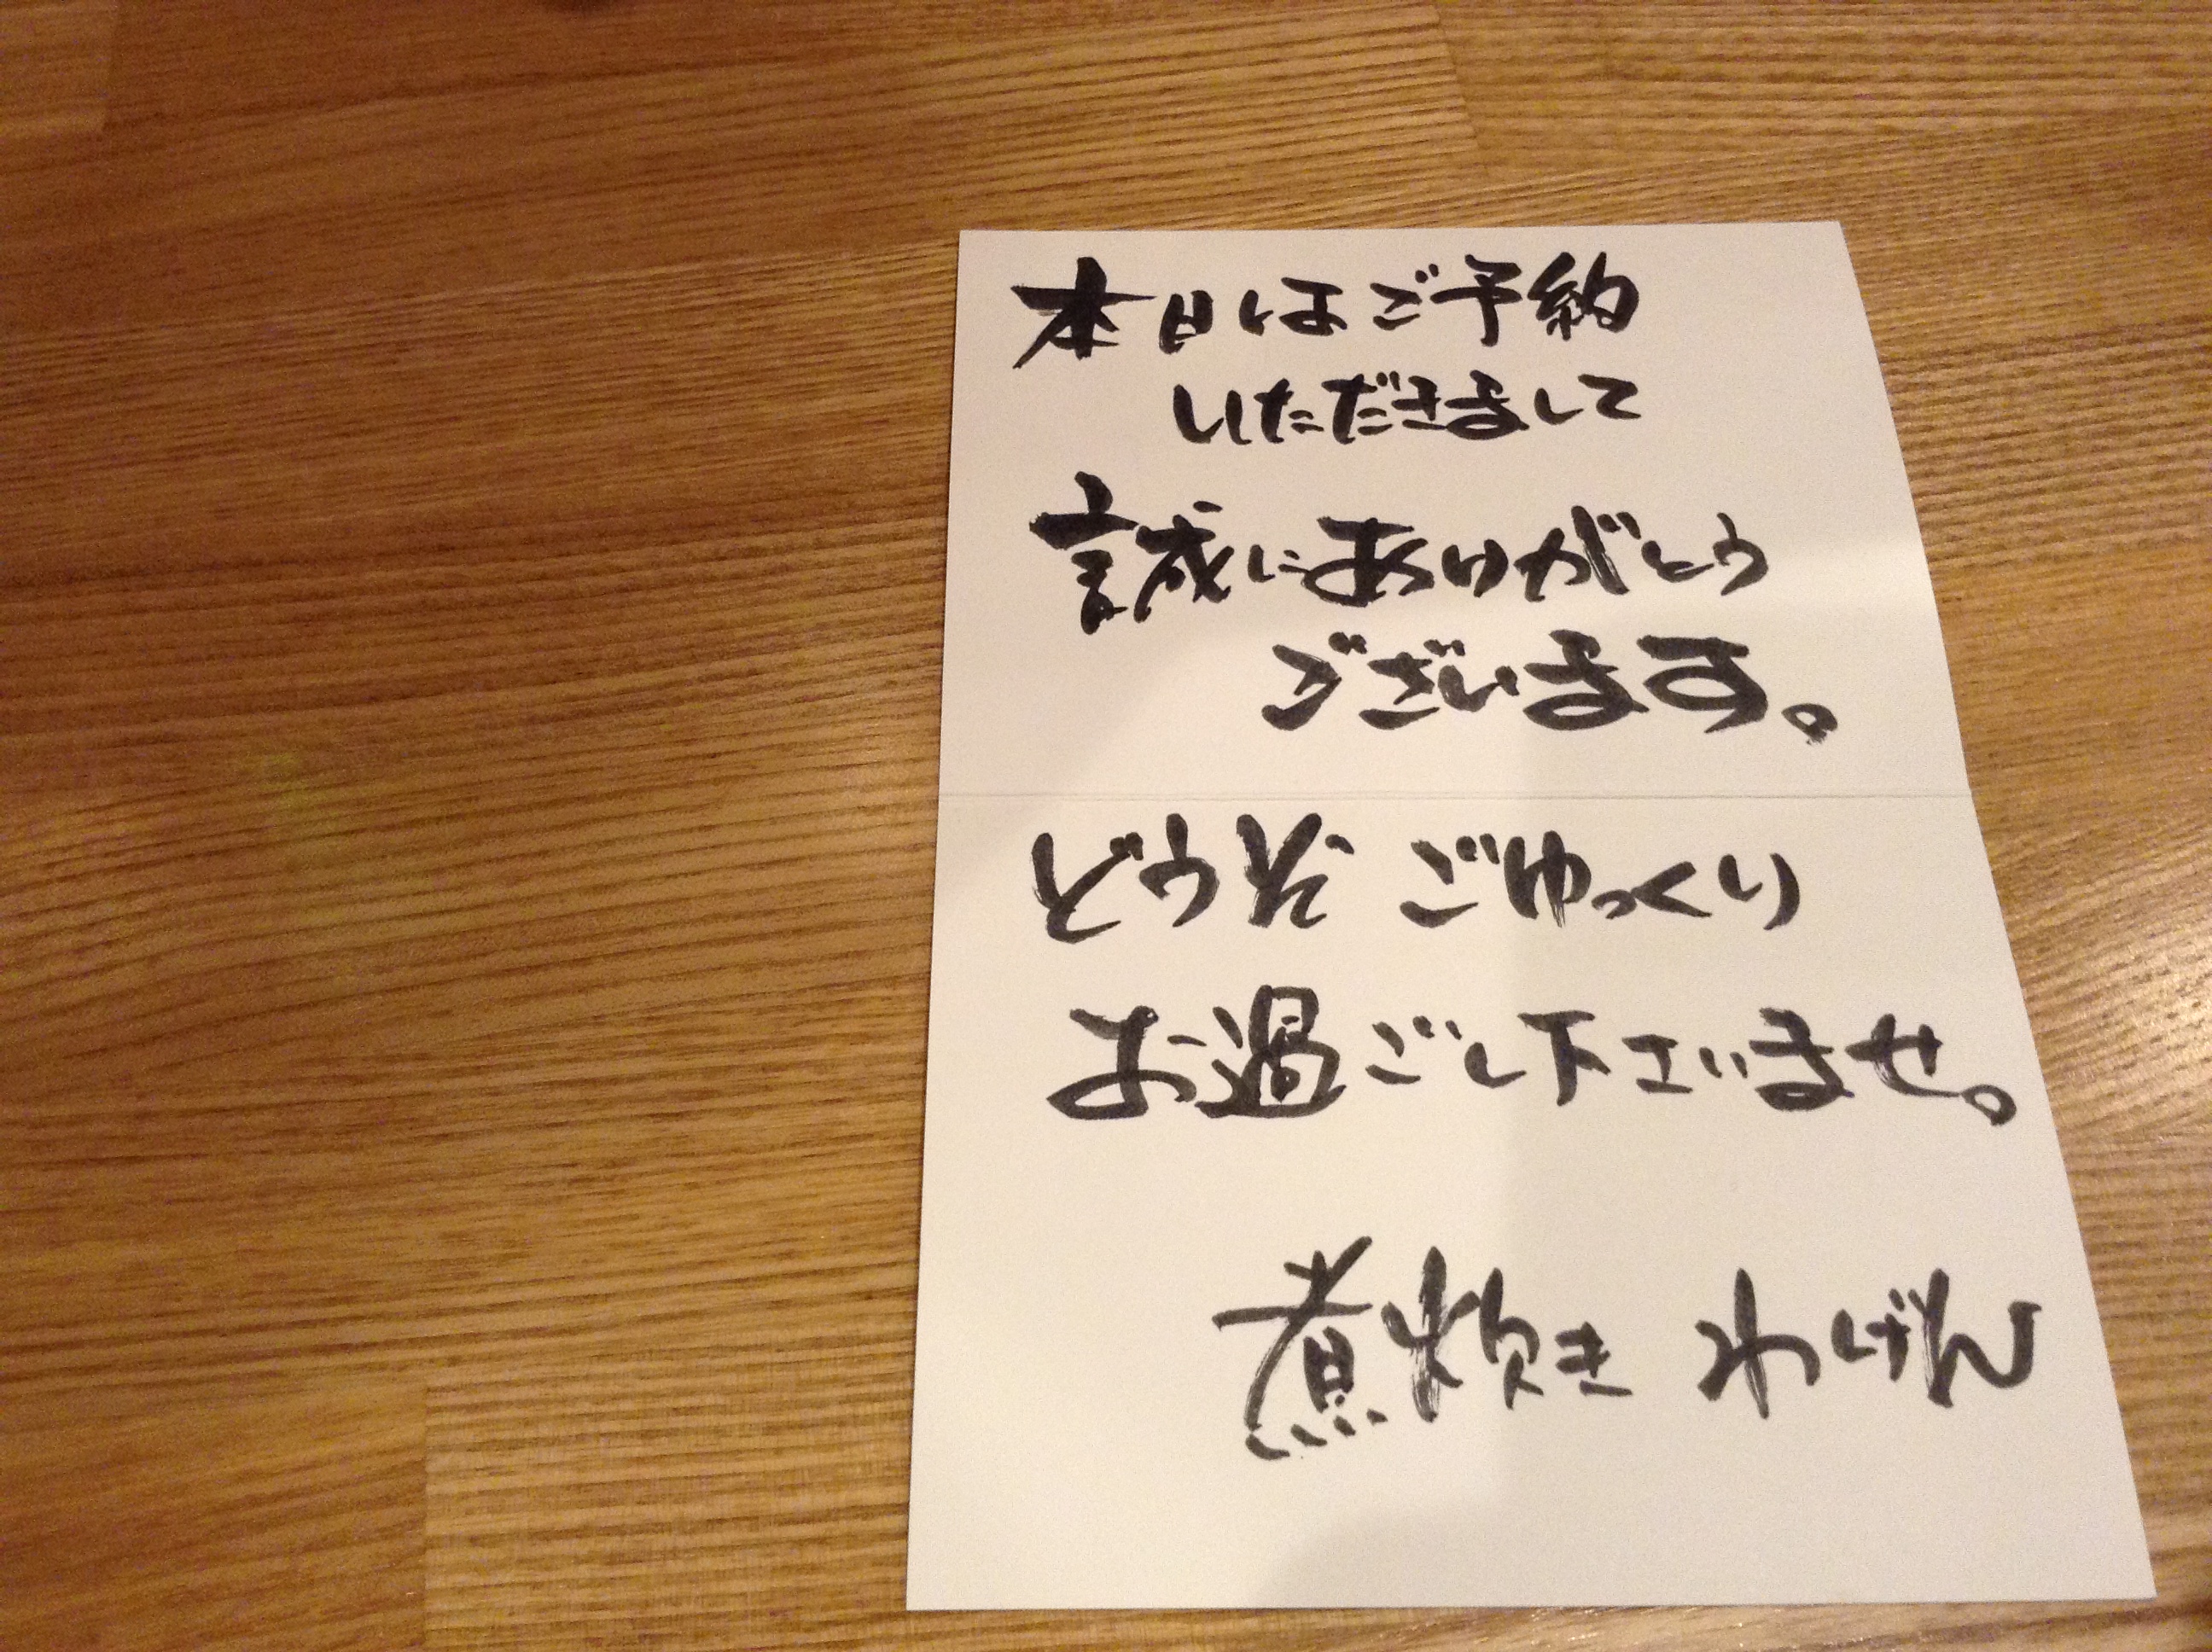 本日はご予約
いただきまして
誠にありがとう
ございます。
どうぞ ごゆっくり
お過ごし下さいませ。
煮炊き わげん